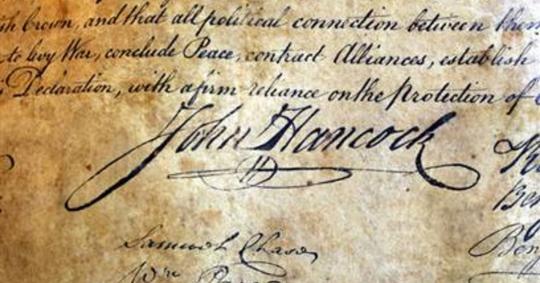 ish Crown, and that all political connection between them
to levy War, conclude Peace, contract Alliances, establish
Declaration, with a firm reliance on the Protection of
John Hancock
Samuel Chase
Wm
Ben
Benj